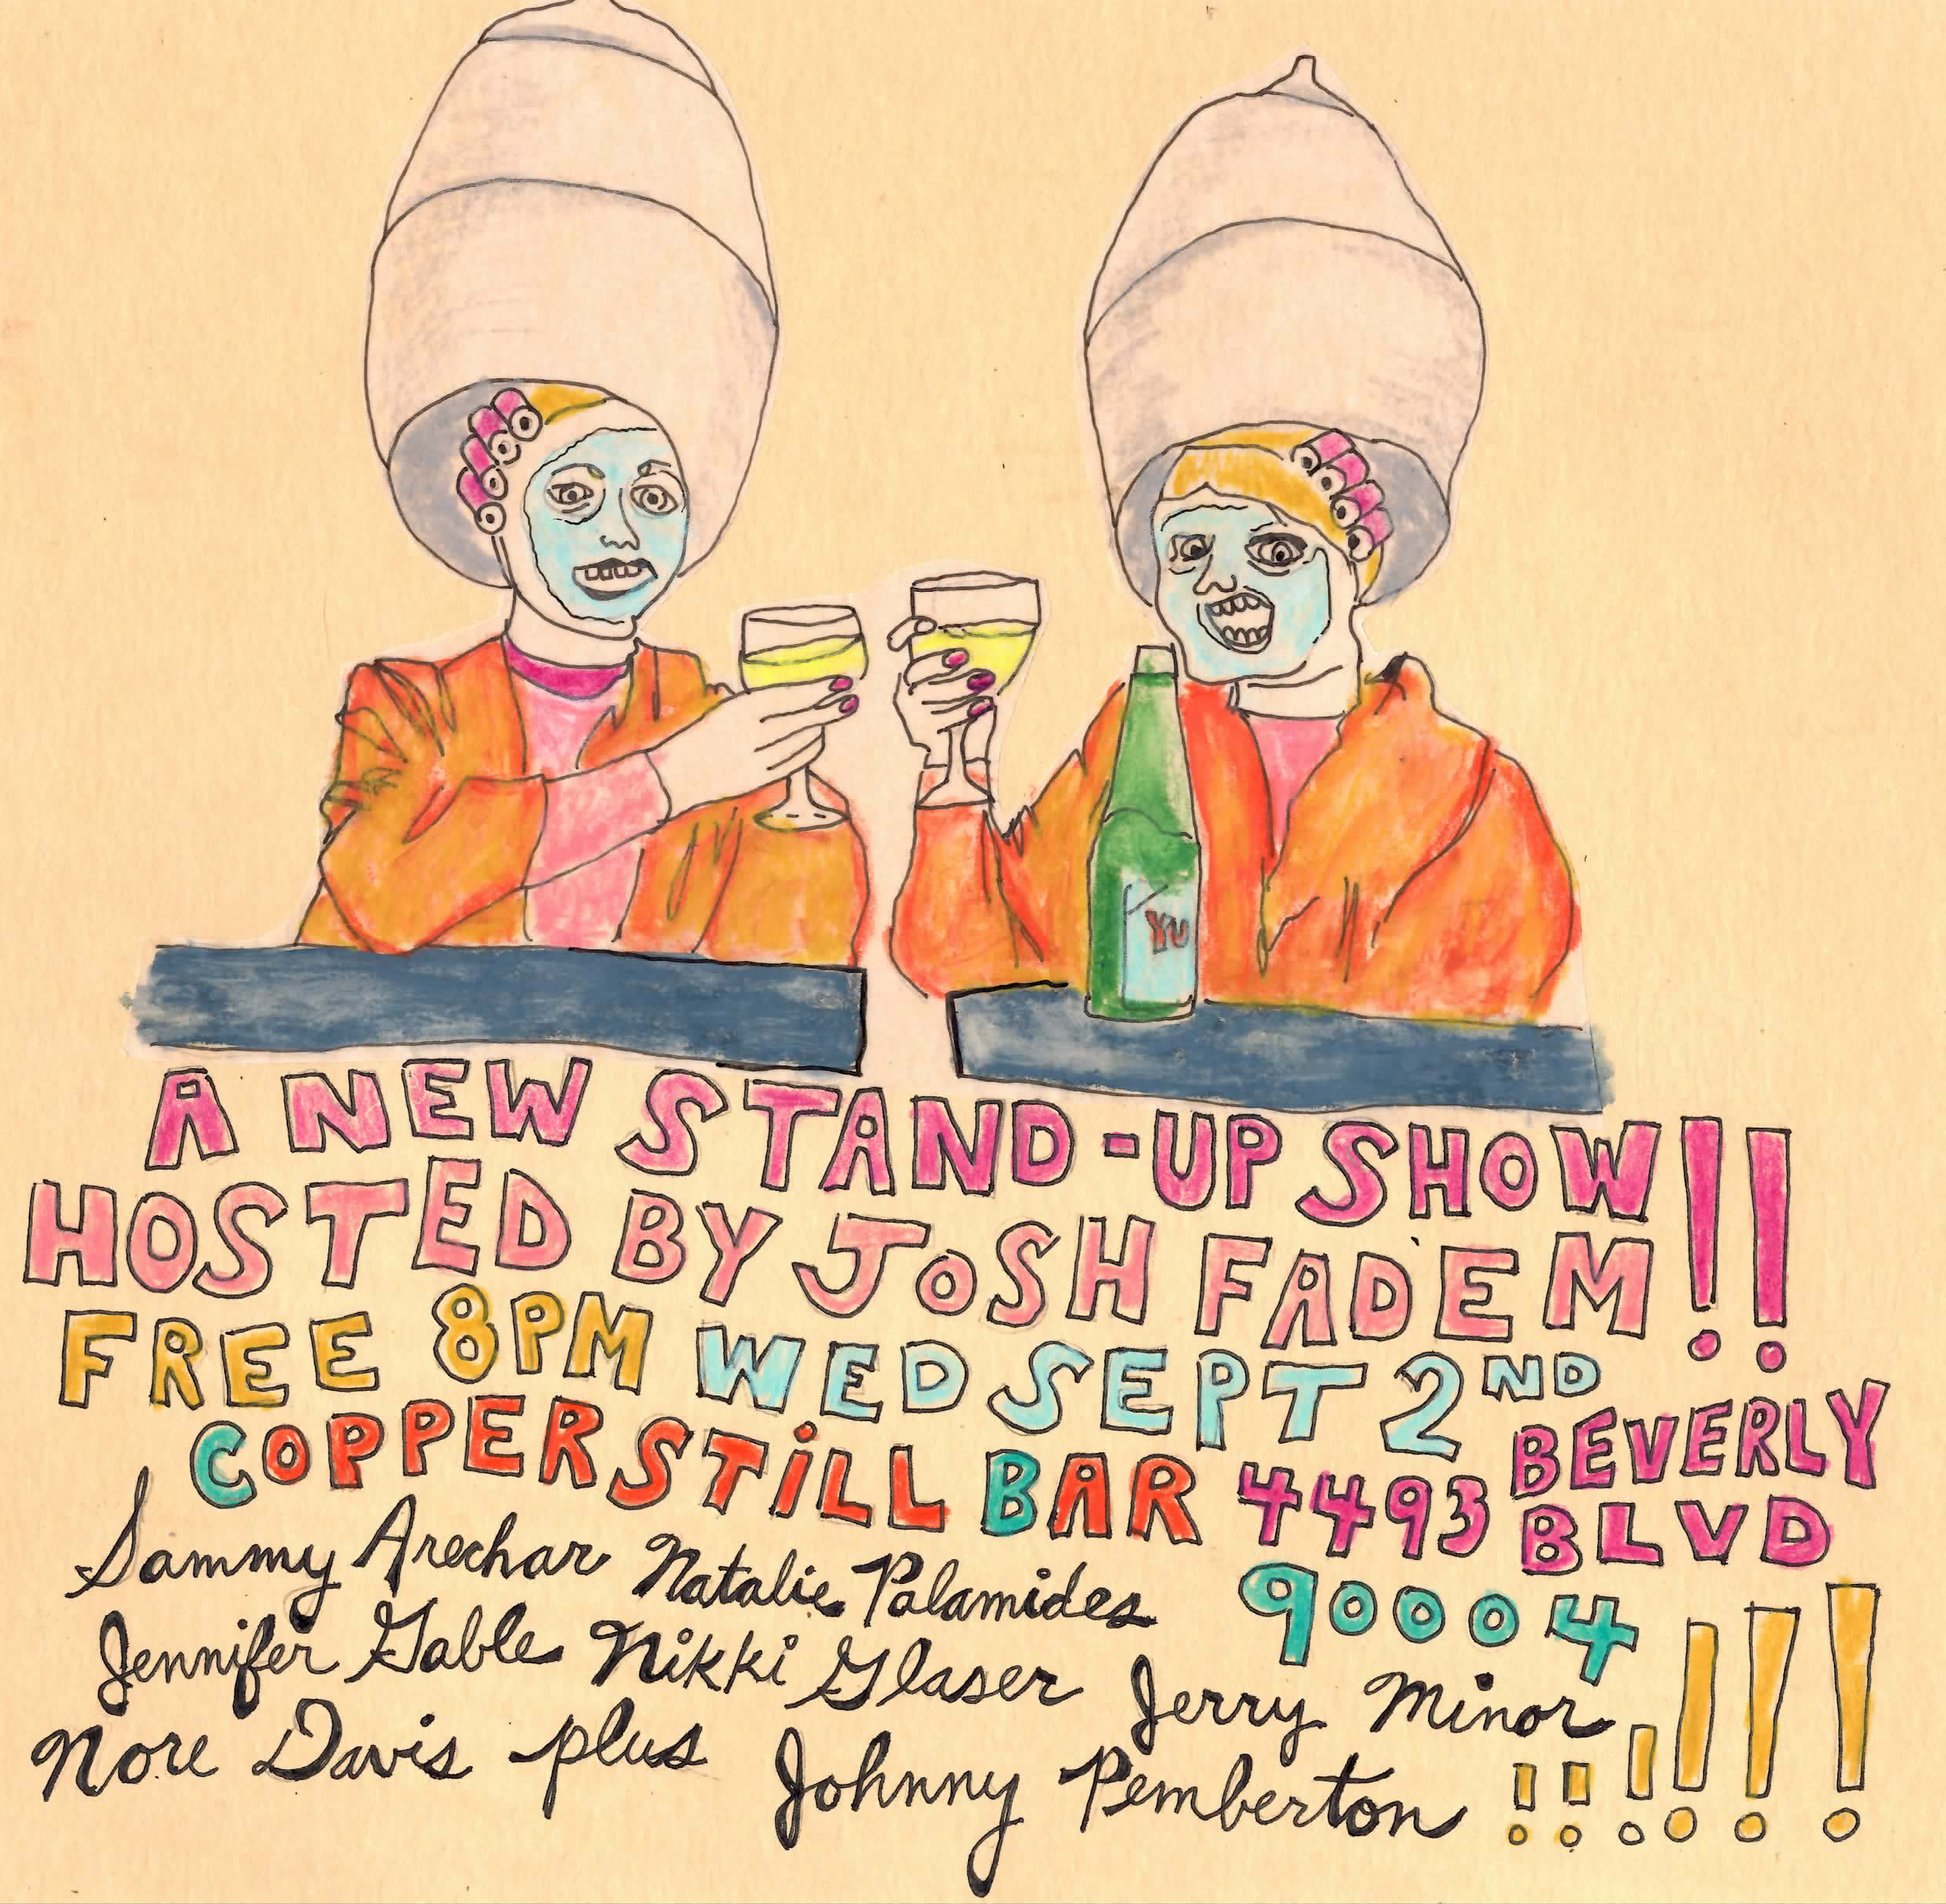 YU
A NEW STAND-UP SHOW!!
HOSTED BY JOSH FADEM
FREE 8PM WED SEPT 2ND
COPPER STiLL BAR 4493 BEVERLY BLVD
90004
Sammy Arechar Natalie Palamides
Jennifer Gable Nikki Glaser Jerry Minor
Nore Davis plus Johnny Pemberton !!!!!!